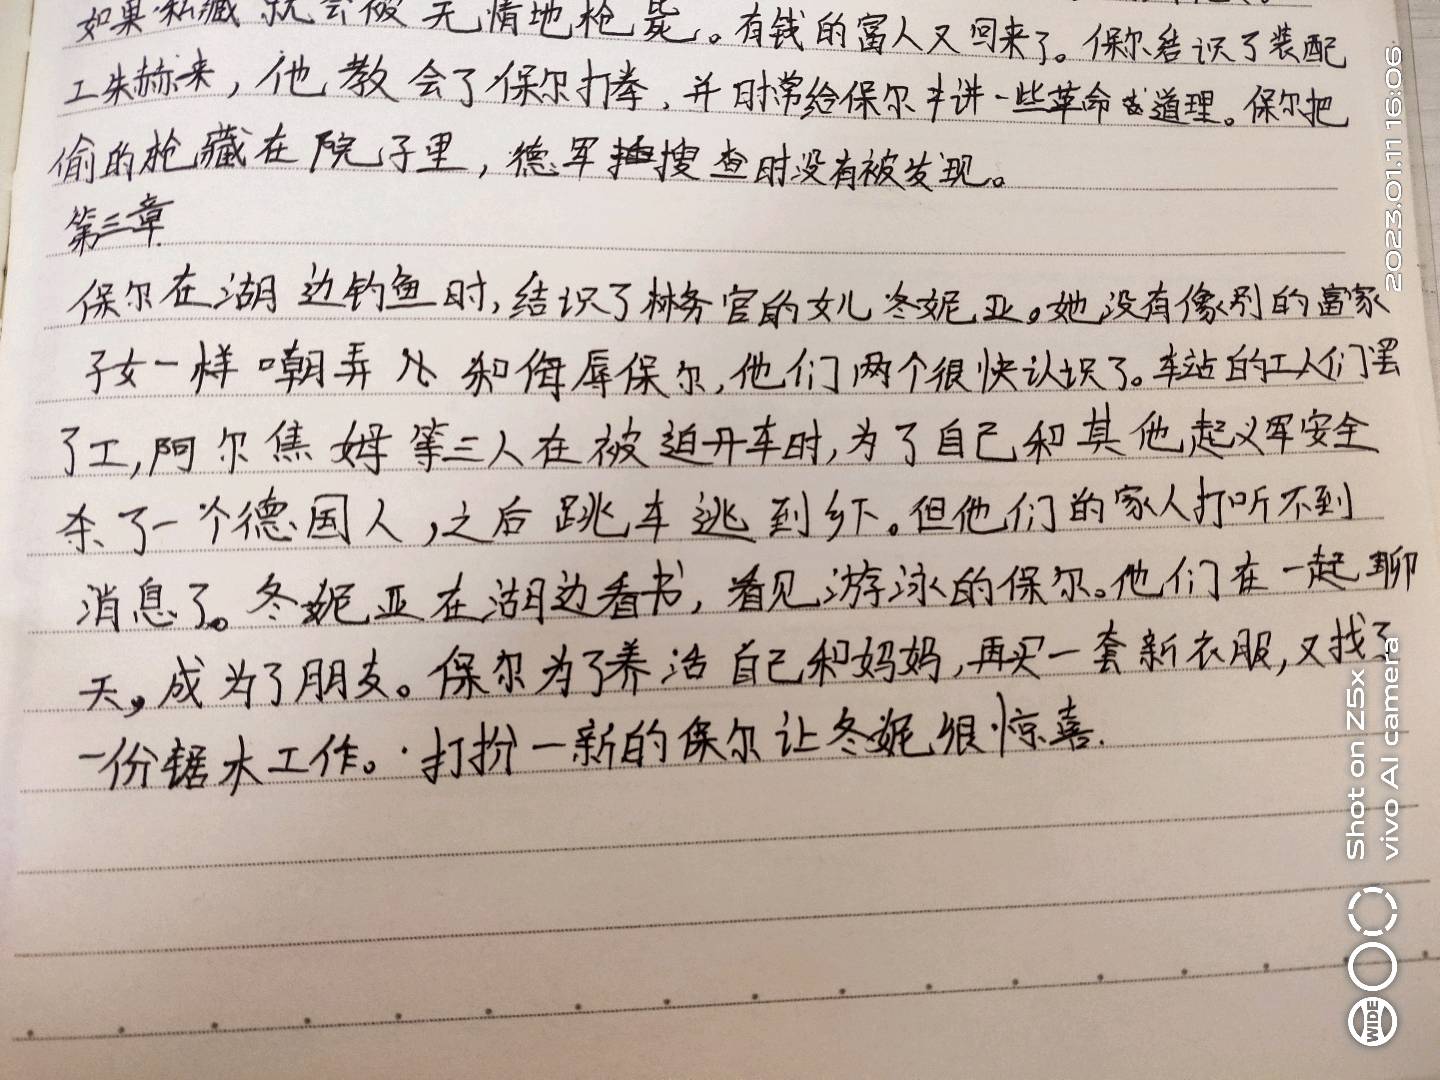 如果私藏就会被无情地枪毙。有钱的富人又回来了。保尔结识了装配
工朱赫来,他教会了保尔打拳,并时常给保尔讲一些革命道理。保尔把
偷的枪藏在院子里,德军搜查时没有被发现。
第三章
保尔在湖边钓鱼时,结识了林务官的女儿冬妮亚。她没有像别的富家
子女一样嘲弄和侮辱保尔,他们两个很快认识了。车站的工人们罢
了工,阿尔焦姆等三人在被迫开车时,为了自己和其他起义军安全
杀了一个德国人,之后跳车逃到乡下。但他们的家人打听不到
消息了。冬妮亚在湖边看书,看见游泳的保尔。他们在一起聊
天,成为了朋友。保尔为了养活自己和妈妈,再买一套新衣服,又找了
一份锯木工作。打扮一新的保尔让冬妮很惊喜.
2023.01.11 16:06
Shot on Z5x
vivo AI camera
WIDE